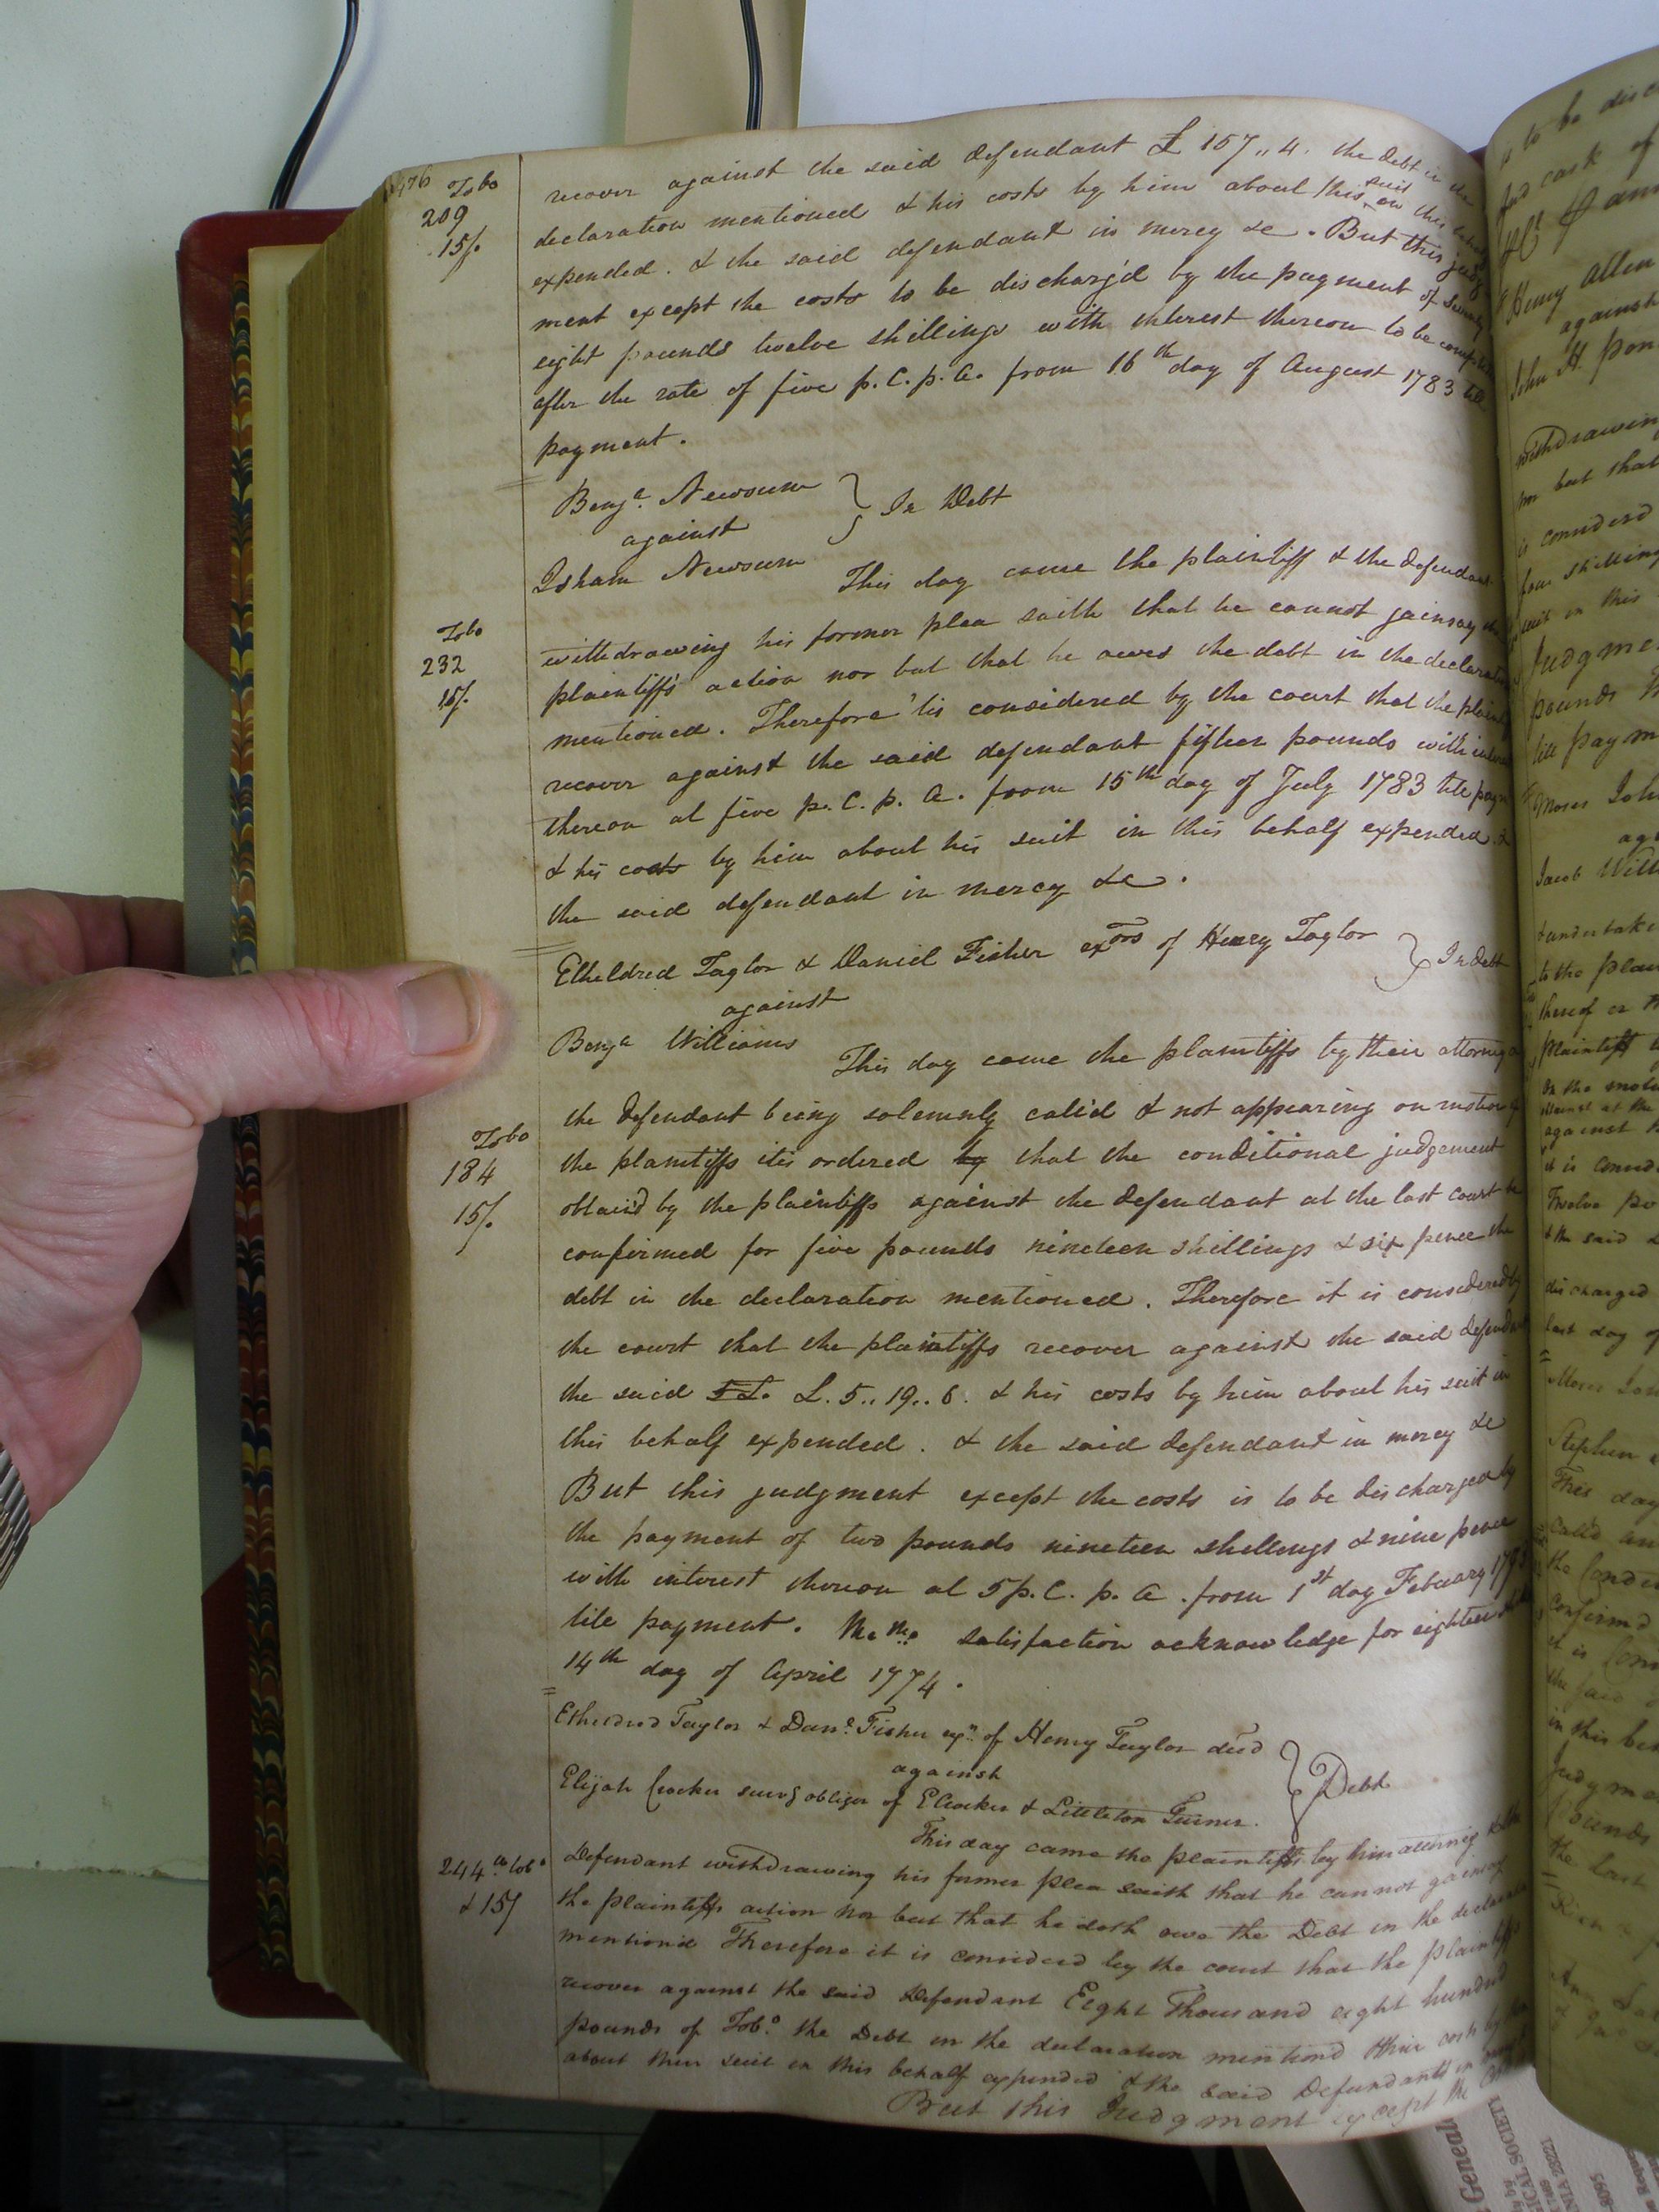 476
Tobo
209
15/.
recover against the said defendant £ 157,, 4. the debt in the
declaration mentioned & his costs by him about this suit on this behalf
expended. & the said defendant in mercy &c. But this judg
ment except the costs to be discharg'd by the payment of seventy
eight pounds twelve shillings with interest thereon to be computed
after the rate of five p. C. p. A. from 16th day of August 1783 till
payment.
Benja. Newsum
against
Isham Newsum
} In Debt
Tobo
232
15/.
This day came the plaintiff & the defendant
withdrawing his former plea saith that he cannot gainsay the
plaintiff's action nor but that he owes the debt in the declaration
mentioned. Therefore 'tis considered by the court that the plaintiff
recover against the said defendant fifteen pounds with interest
thereon at five p. C. p. A. from 15th day of July 1783 till paym
& his costs by him about his suit in this behalf expended &
the said defendant in mercy &c.
Etheldred Taylor & Daniel Fisher exors of Henry Taylor
against
Benja Williams
} In Debt
Tobo
184
15/.
This day came the plaintiffs by their attorney &
the defendant being solemnly call'd & not appearing on motion of
the plaintiffs itis ordered by that the conditional judgement
obtain'd by the plaintiffs against the defendant at the last court be
confirmed for five pounds nineteen shillings & six pence the
debt in the declaration mentioned. Therefore it is considered by
the court that the plaintiffs recover against the said defendant
the said £. 5.. 19.. 6. & his costs by him about his suit in
this behalf expended. & the said defendant in mercy &c
But this judgment except the costs is to be discharged by
the payment of two pounds nineteen shellings & nine pence
with interest thereon at 5 p. C. p. A. from 1st day Febuary
till payment. satisfaction acknowledge for eighteen
14th day of April 1774.
Etheldred Taylor & Danl. Fisher exrs. of Henry Taylor decd
against
Elijah Crocker survg obligor of E Crocker & Littleton Turner.
} Debt
244 lb tobo
& 15/
This day came the plaintiffs by him attorney & the
Defendant withdrawing his former plea saith that he cannot gainsay
the plaintiffs action nor but that he doth owe the Debt in the declaration
mention'd Therefore it is considerd by the court that the plaintiffs
recover against the said Defendant Eight Thousand eight hundred
pounds of Tobo. the Debt in the declaration mentiond & their costs by
about their suit in this behalf expended & the said Defendants in
But this Judgment except the
is to be
Henry Allen
against
John H. Pon
withdrawing
but that
is considerd
four shilling
suit in this
Judgme
pounds
till paym
Moses Joh
Jacob Will
& undertake
to the plain
thereof or
plaintiff
On the motion
against
it is consid
Twelve po
& the said
discharged
last day of
Moses
Stephen
This day
Calld an
the
Confirmd
it is Cons
the said
in this be
Judgme
Pounds
the last
Geneal
by
ICAL SOCIETY
NIA 23221